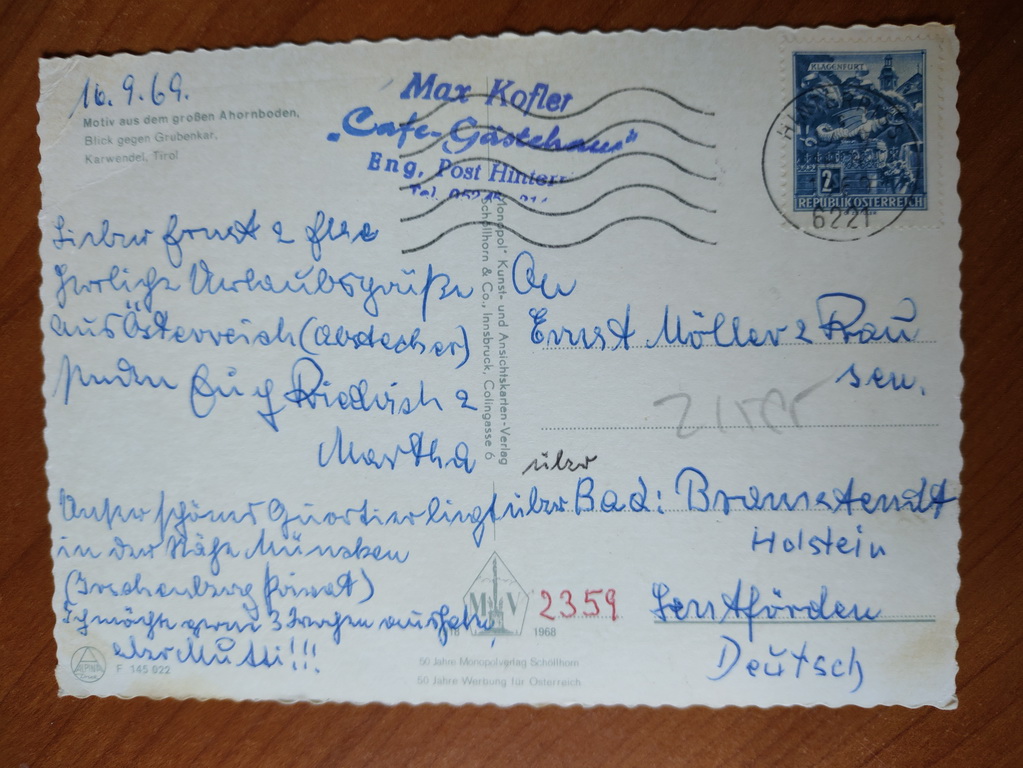 16.9.69.
Motiv aus dem großen Ahornboden,
Blick gegen Grubenkar,
Karwendel, Tirol
Max Kofler
„Cafe-Gästehaus"
Eng, Post Hinterr
Tel. 05245
KLAGENFURT
2
REPUBLIK ÖSTERREICH
6221
Lieber Ernst & Else
Herzliche Urlaubsgrüße
aus Österreich (Abstecher)
senden Euch Friedrich &
Martha
Unser schönes Quartier liegt
in der Nähe München
(Irschenberg Privat)
Ich möchte gern 3 Wochen aushalten,
aber Mutti!!!
"Monopol" Kunst- und Ansichtskarten-Verlag
Schöllhorn & Co., Innsbruck, Colingasse 6
An
Ernst Möller & Frau
sen.
über
über Bad: Bramstendt
Holstein
2359 Lentförden
Deutsch
MV
18 1968
50 Jahre Monopolverlag Schöllhorn
50 Jahre Werbung für Österreich
ALPINA
F 145 022